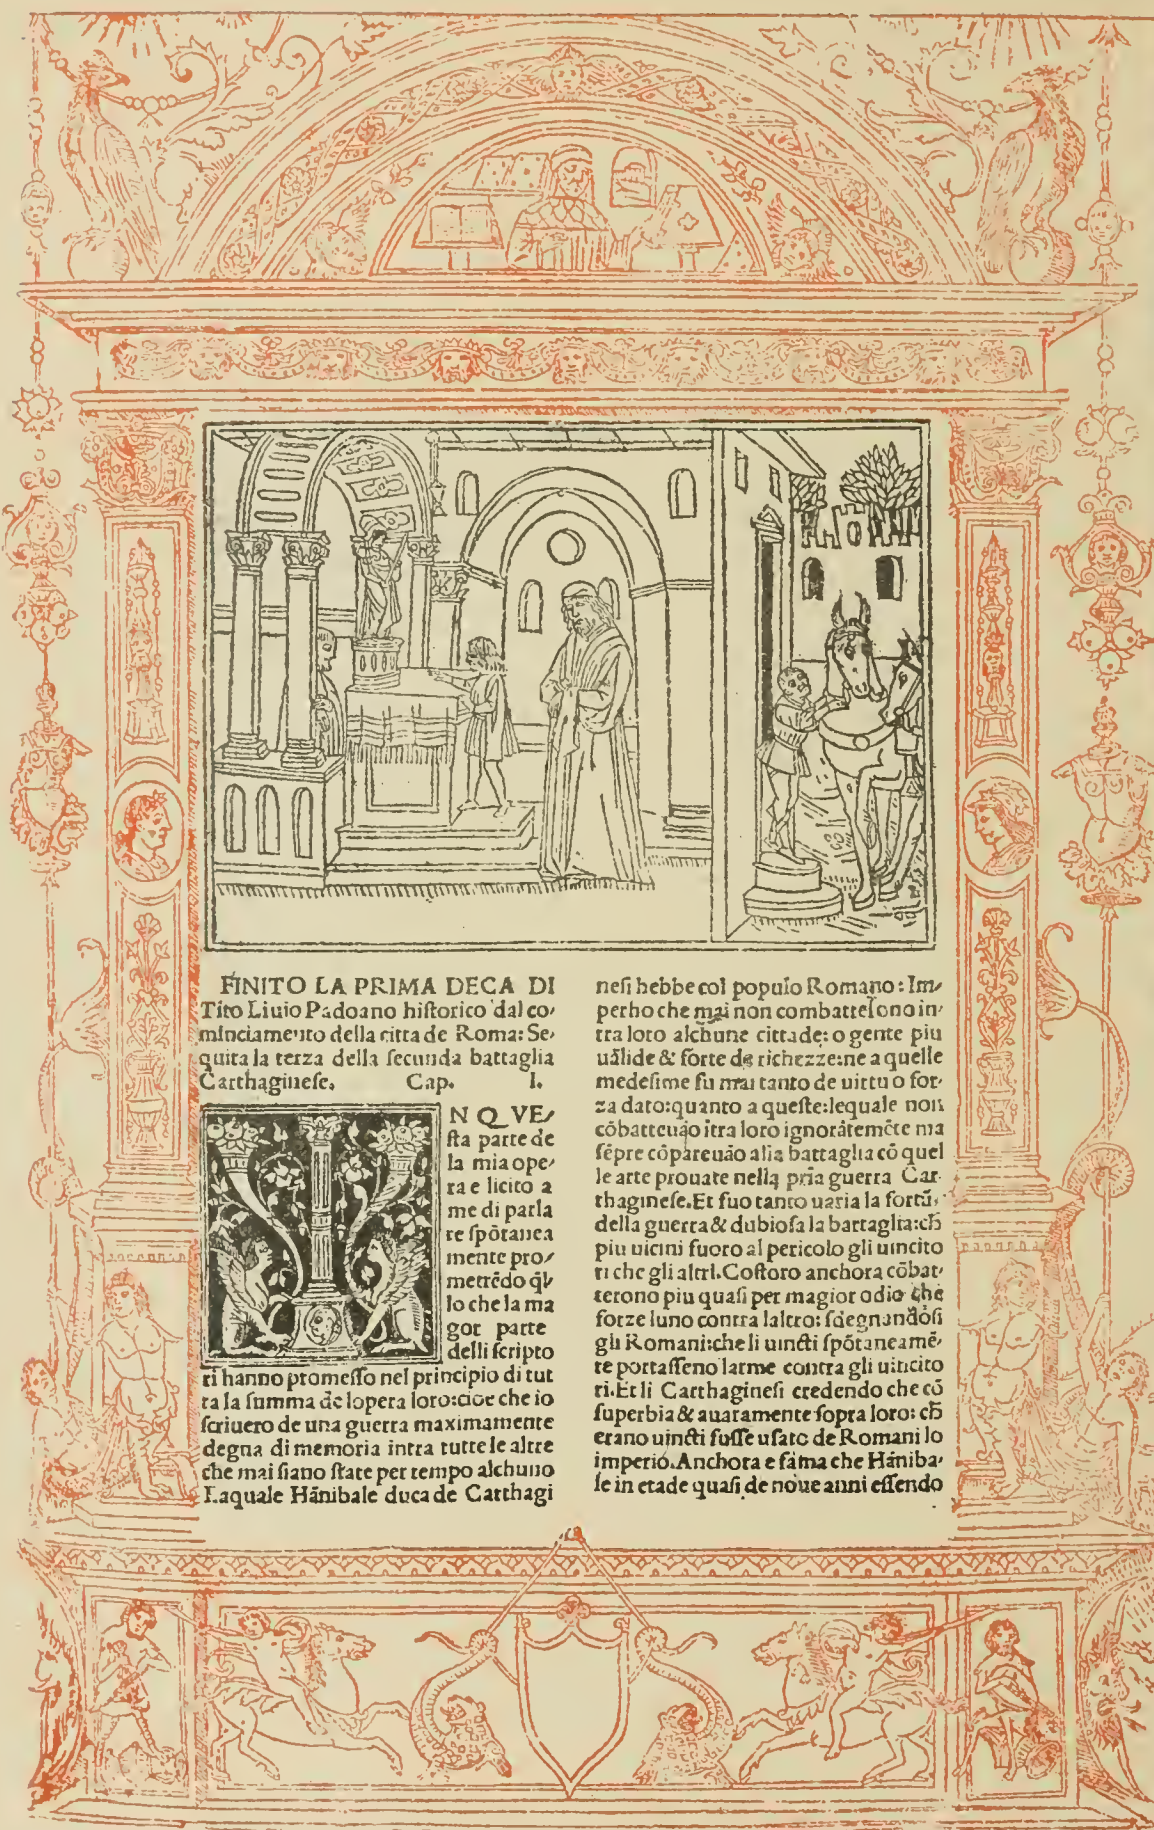 FINITO LA PRIMA DECA DI
Tito Liuio Padoano hiſtorico dal co/
minciamento della citta de Roma: Se/
quita la terza della ſecunda battaglia
Carthagineſe. Cap. I.
N Q VE/
ſta parte de
la mia ope/
ra e licito a
me di parla
re ſpōtanea
mente pro/
mettēdo ql/
lo che la ma
gor parte
delli ſcripto
ri hanno promeſſo nel principio di tut
ta la ſumma de lopera loro:cioe che io
ſcriuero de una guerra maximamente
degna di memoria intra tutte le altre
che mai ſiano ſtate per tempo alchuno
Laquale Hānibale duca de Carthagi
neſi hebbe col populo Romano: Im/
perho che mai non combatteſono in/
tra loro alchune cittade: o gente piu
ualide & forte de richezze:ne a quelle
medeſime fu mai tanto de uirtu o for/
za dato:quanto a queſte:lequale non
cōbatteuāo ītra loro ignorātemēte ma
ſēpre cōpareuāo alla battaglia cō quel
le arte prouate nella pria guerra Car/
thagineſe.Et fuo tanto uaria la fortūa
della guerra & dubioſa la battaglia:ch̄
piu uicini fuoro al pericolo gli uincito
ri che gli altri.Coſtoro anchora cōbat/
terono piu quaſi per magior odio che
forze luno contra laltro: ſdegnandoſi
gli Romani:che li uincti ſpōtaneamē/
te portaſſeno larme contra gli uincito
ri.Et li Carthagineſi credendo che cō
ſuperbia & auaramente ſopra loro: ch̄
erano uincti fuſſe uſato de Romani lo
imperio.Anchora e fama che Hāniba/
le in etade quaſi de noue anni eſſendo